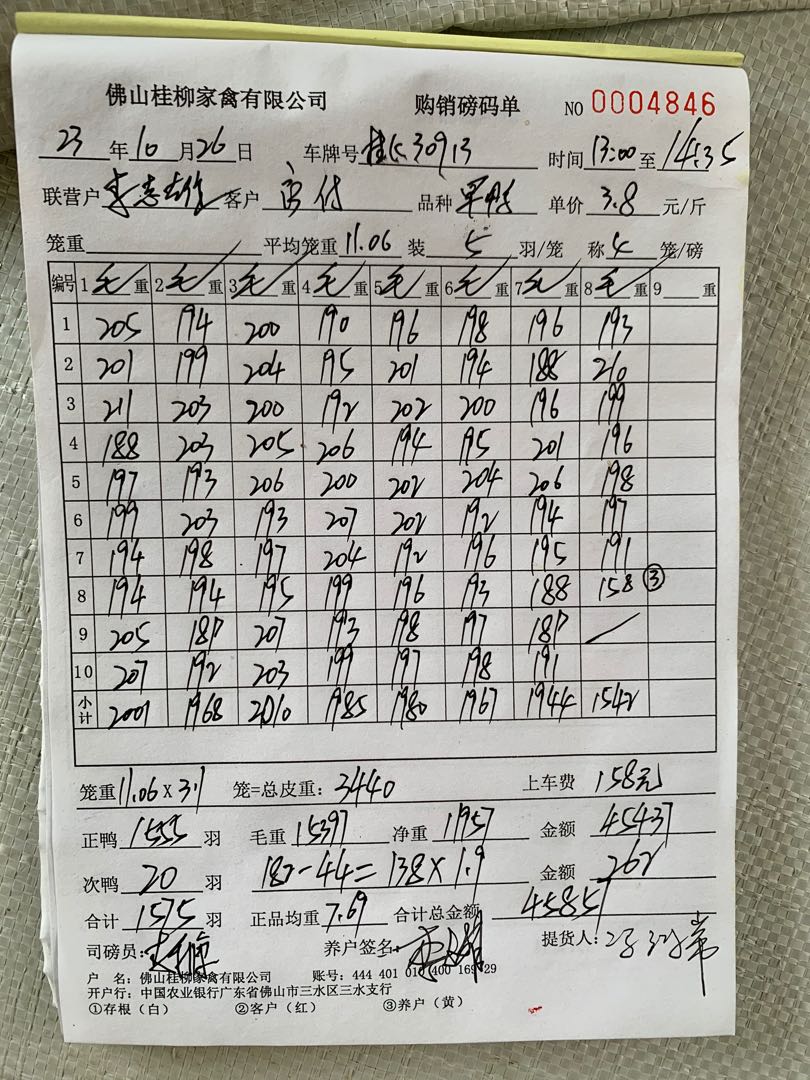 佛山桂柳家禽有限公司 购销磅码单 NO 0004846
23 年 10 月 26 日 车牌号 30913 时间 13:00 至 14:35
联营户 李 客户 品种 单价 3.8 元/斤
笼重 平均笼重 11.06 装 5 羽/笼 称 4 笼/磅
编号 1 毛 重 2 毛 重 3 毛 重 4 毛 重 5 毛 重 6 毛 重 7 毛 重 8 毛 重 9 重
1 205 194 200 190 196 198 196 193
2 201 199 204 195 201 194 188 210
3 211 203 200 192 202 200 196 199
4 188 203 205 206 194 195 201 196
5 197 193 206 200 202 204 206 198
6 199 203 193 207 202 192 194 197
7 194 198 197 204 192 196 195 191
8 194 194 195 199 196 193 188 158 ③
9 205 189 207 193 198 197 189
10 207 192 203 199 197 198 191
小计 2001 1968 2010 1985 1980 1967 1944 1542
笼重 11.06 X 311 笼=总皮重: 3440 上车费 158元
正鸭 1555 羽 毛重 15397 净重 11957 金额 45437
次鸭 20 羽 182-44=138×1.9 金额 262
合计 1575 羽 正品均重 7.69 合计总金额 45851
司磅员: 养户签名: 提货人:
户 名:佛山桂柳家禽有限公司 账号:444 401 010 400 169 29
开户行:中国农业银行广东省佛山市三水区三水支行
①存根(白) ②客户(红) ③养户(黄)